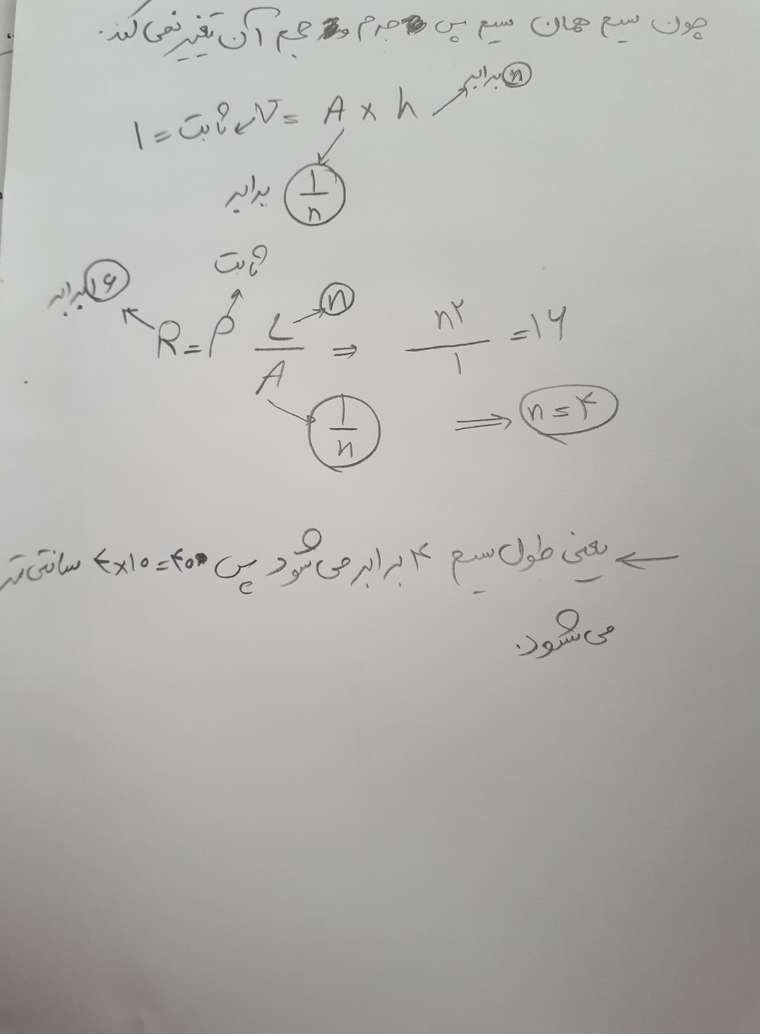 چون سیم همان سیم پس جرم و حجم آن تغییر نمی کند.
۱ = ثابت ← V = A × h → n برابر
برابر 1/n
ثابت
۱۶ برابر
R = ρ L/A ⇒ n²/۱ = ۱۶
n
1/n ⟹ n = ۴
← یعنی طول سیم ۴ برابر می شود پس ۴×۱۰=۴۰ سانتی متر
می شود.